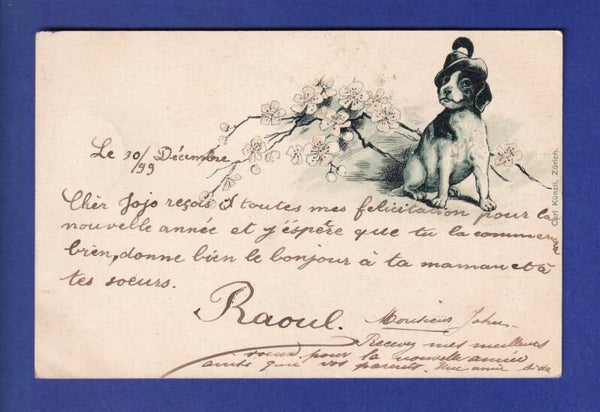 Le 30/99 Décembre
Cher Jojo reçois toutes mes felicitation pour la
nouvelle année et j'éspère que tu la commen
bien, donne bien le bonjour à ta maman et à
tes soeurs.
Raoul.
Monsieur John.
Recevez mes meilleurs
voeux pour la nouvelle année
ainsi que vos parents. Une amie
Carl Künzli, Zürich.